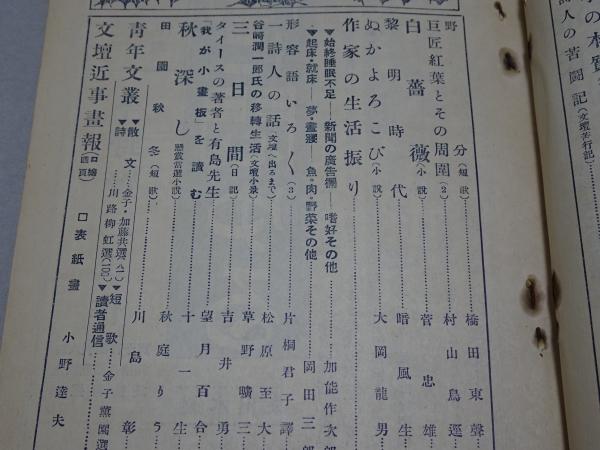 詩人の苦闘記(文壇苦行記)
野分(短歌)橋田東聲
巨匠紅葉とその周圍(2)村山鳥逕
白薔薇(小説)菅忠雄
黎明時代 暗風生
ぬかよろこび(小説)大岡龍男
作家の生活振り
▼始終睡眠不足――新聞の廣告欄――嗜好その他 加能作次郎
▼起床・就床――夢・晝寢――魚・肉・野菜その他 岡田三郎
形容語いろ〱(3)片桐君子譯
一詩人の話(文壇へ出るまで)松原至大
谷崎潤一郎氏の移轉生活(文壇小景)草野曠三
三日間(日記)吉井勇
タイースの著者と有島先生 望月百合
「我が小畫板」を讀む 十一生
秋深し(懸賞當選小説)秋庭りう
田園秋冬(短歌)川島彰
靑年文叢 ▼散文……金子・加藤共選(八二)▼短歌……金子薰園選
▼詩……川路柳虹選(100)▼讀者通信
文壇近事畫報(口繪四頁)口表紙畫 小野達夫